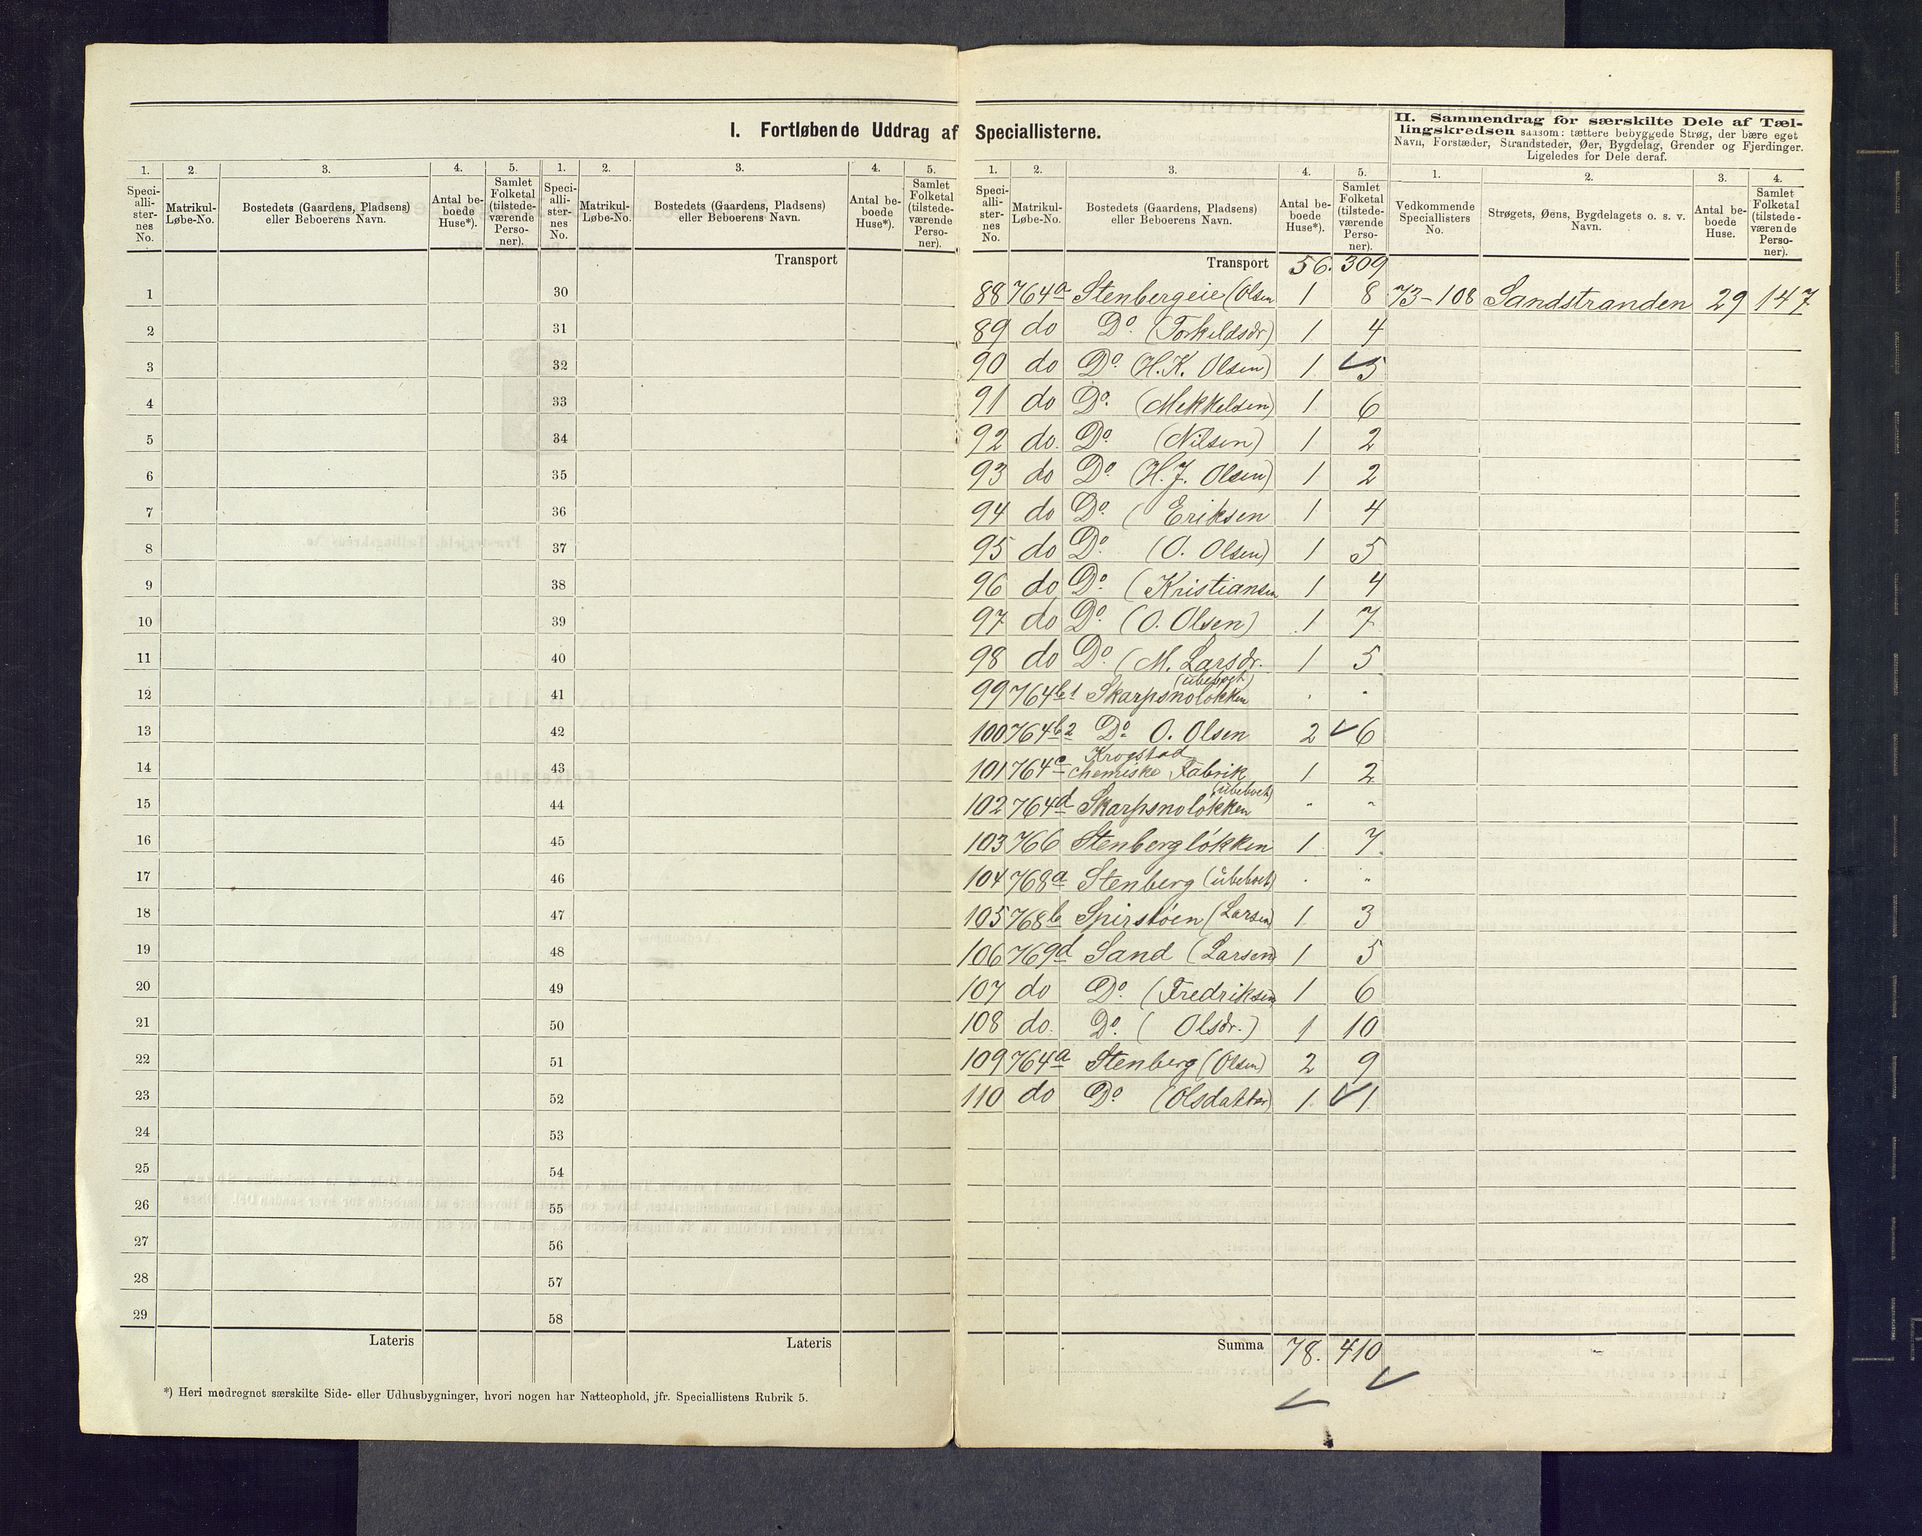 I. Fortløbende Uddrag af Speciallisterne.
II. Sammendrag for særskilte Dele af Tæl-
lingskredsen saasom: tættere bebyggede Strøg, der bære eget
Navn, Forstæder, Strandsteder, Øer, Bygdelag, Grender og Fjerdinger.
Ligeledes for Dele deraf.
1. 2. 3. 4. 5. 1. 2. 3. 4. 5.
Speci-allister-nes No. Matrikul-Løbe-No. Bostedets (Gaardens, Pladsens) eller Beboerens Navn. Antal be-boede Huse*). Samlet Folketal (tilstede-værende Perso-ner).
Speci-allister-nes No. Matrikul-Løbe-No. Bostedets (Gaardens, Pladsens) eller Beboerens Navn. Antal be-boede Huse*). Samlet Folketal (tilstede-værende Perso-ner).
Transport
1 30
2 31
3 32
4 33
5 34
6 35
7 36
8 37
9 38
10 39
11 40
12 41
13 42
14 43
15 44
16 45
17 46
18 47
19 48
20 49
21 50
22 51
23 52
24 53
25 54
26 55
27 56
28 57
29 58
Lateris Lateris
*) Heri medregnet særskilte Side- eller Udhusbygninger, hvori nogen har Natteophold, jfr. Speciallistens Rubrik 5.
1. 2. 3. 4. 5. 1. 2. 3. 4.
Speci-allister-nes No. Matrikul-Løbe-No. Bostedets (Gaardens, Pladsens) eller Beboerens Navn. Antal be-boede Huse*). Samlet Folketal (tilstede-værende Perso-ner).
Vedkommende Speciallisters No. Strøgets, Øens, Bygdelagets o. s. v. Navn. Antal be-boede Huse. Samlet Folketal (tilstede-værende Perso-ner).
Transport 56. 309
88 764a Stenbergeie (Olsen 1 8 73-108 Sandstranden 29 147
89 do Do (Torkildsdr) 1 4
90 do Do (H.K. Olsen) 1 5
91 do Do (Mekkelsen) 1 6
92 do. Do (Nilsen) 1 2
93 do Do (H.J. Olsen) 1 2
94 do Do. (Eriksen 1 4
95 do Do. (O. Olsen) 1 5
96 do Do (Kristiansen 1 4
97 do Do. (O. Olsen) 1 7
98 do Do. (M. Larsdr. 1 5
99 764b1 Skarpsnoløkken (ubeboet) " "
100 764b2 Do O. Olsen 2 6
101 764c Krogstad chemiske Fabrik 1 2
102 764d Skarpsnoløkken (ubeboet) " "
103 766 Stenbergløkken 1 7
104 768a Stenberg (ubeboet) " "
105 768b Spirstøen (Larsen) 1 3
106 769d Sand (Larsen) 1 5
107 do Do. (Fredriksen) 1 6
108 do. Do. (Olsdr.) 1 10
109 764a Stenberg (Olsen) 2 9
110 do Do (Olsdatter) 1. 1.
Summa 78. 410